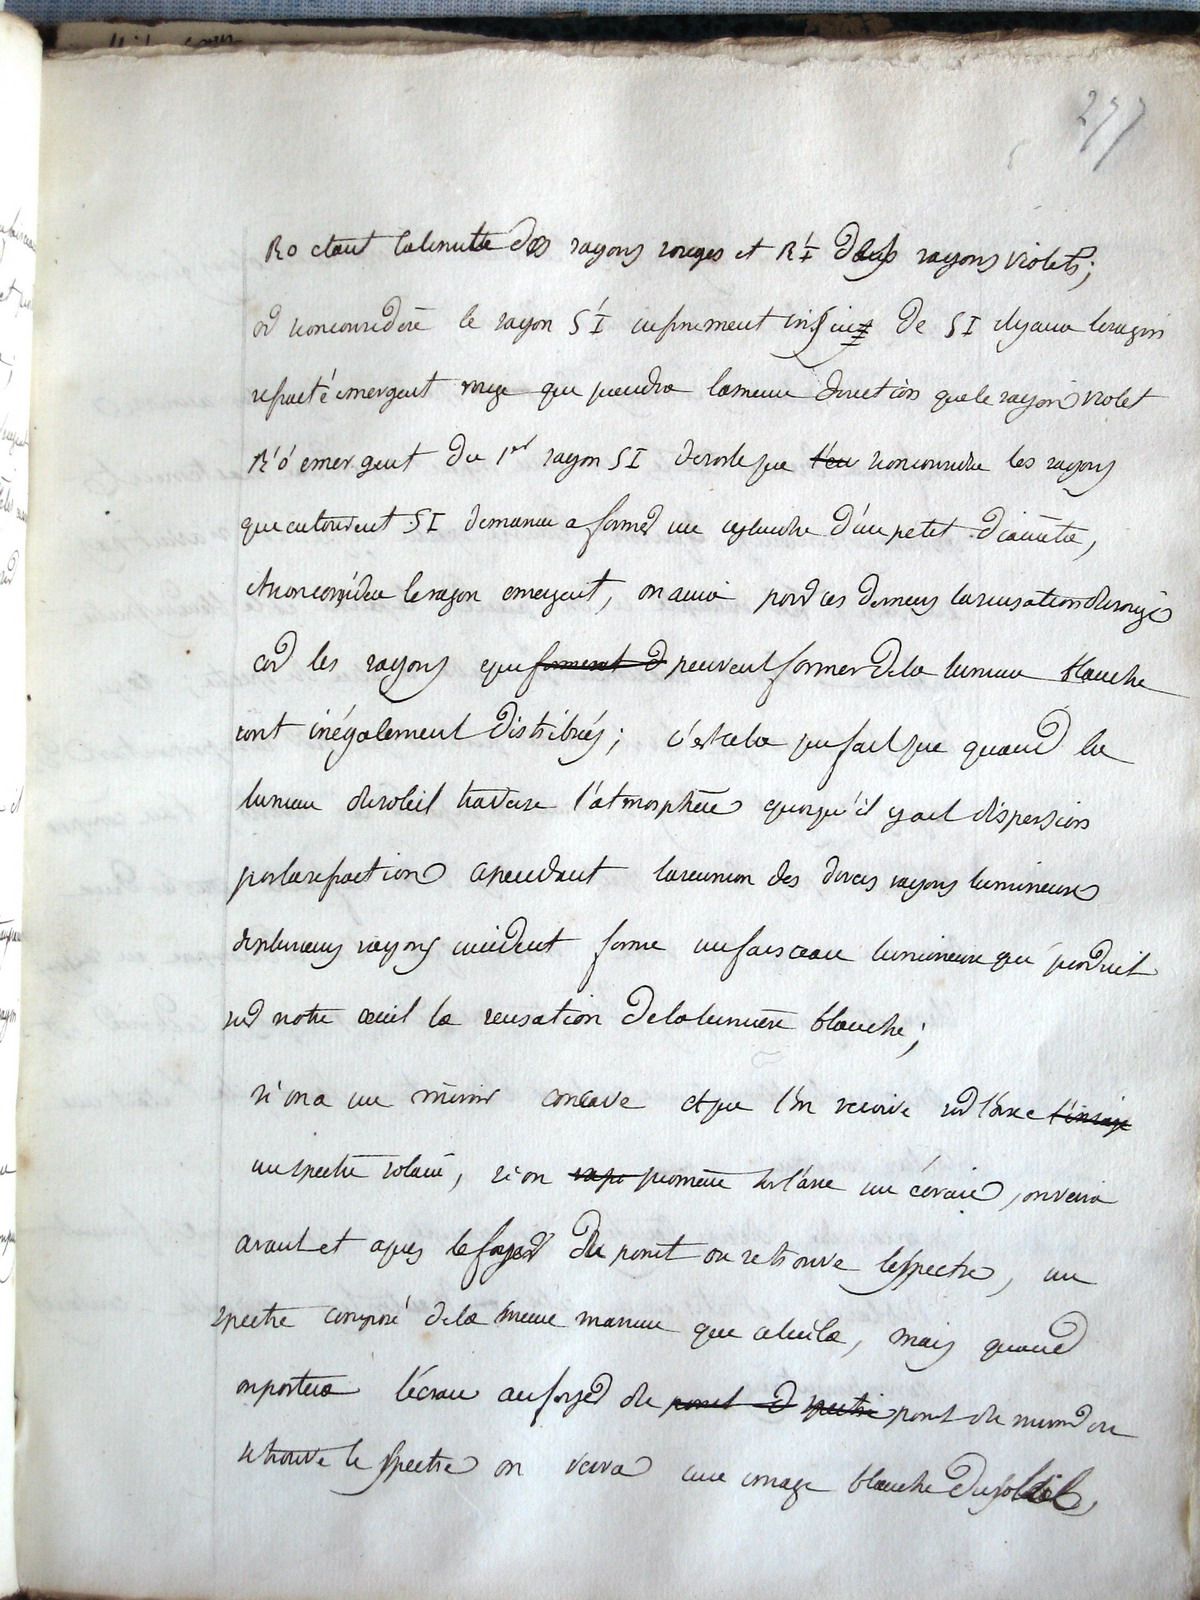 277
RO etant la limite des rayons rouges et R'I' des rayons violets;
or si on considere le rayon S'I' infiniment voisin de SI il y aura le rayon
refracté emergent rouge qui prendra la meme direction que le rayon violet
R'O' emergent du 1er rayon SI de sorte que l'eu si on considere les rayons
qui entourent SI de maniere a former un cylindre d'un petit diametre,
et si on considere le rayon emergent, on aura pour ces derniers la sensation du rouge
car les rayons qui forment d peuvent former de la lumiere blanche
sont inégalement distribués; c'est cela qui fait que quand la
lumiere du soleil traverse l'atmosphere quoiqu'il y ait dispersion
par la refraction cependant la reunion des divers rayons lumineux
de plusieurs rayons incident forme un faisceau lumineux qui produit
sur notre oeuil la sensation de la lumiere blanche;
si on a un miroir concave et que l'on recoive sur l'axe l'image
un spectre solaire, si on promene sur l'axe un écran, on verra
avant et apres le foyer du point on se trouve le spectre, un
spectre composé de la meme maniere que celui la, mais quand
on portera l'écran au foyer du point d spectre point du miroir ou
se trouve le spectre on verra une image blanche du soleil,